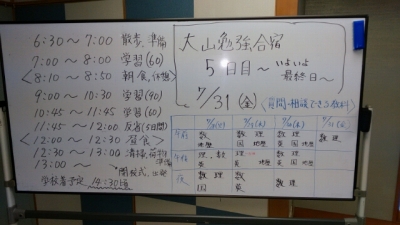 6:30～7:00 散歩、準備
7:00～8:00 学習(60)
<8:10～8:50 朝食、休憩>
9:00～10:30 学習(90)
10:45～11:45 学習(60)
11:45～12:00 反省(5日間)
<12:00～12:30 昼食>
12:30～13:00 清掃、荷物
13:00～ 閉校式、出発
学校着予定 14:30頃
大山勉強合宿
5日目～いよいよ
最終日～
7/31(金)
<質問・相談できる教科>
午前 数 数 理 数 理 数 理
地歴 国 地歴 英 国 地歴
午後 理、数 数 理 数
英 地歴 英 地歴
夜 数 数 理 数 理
国 英